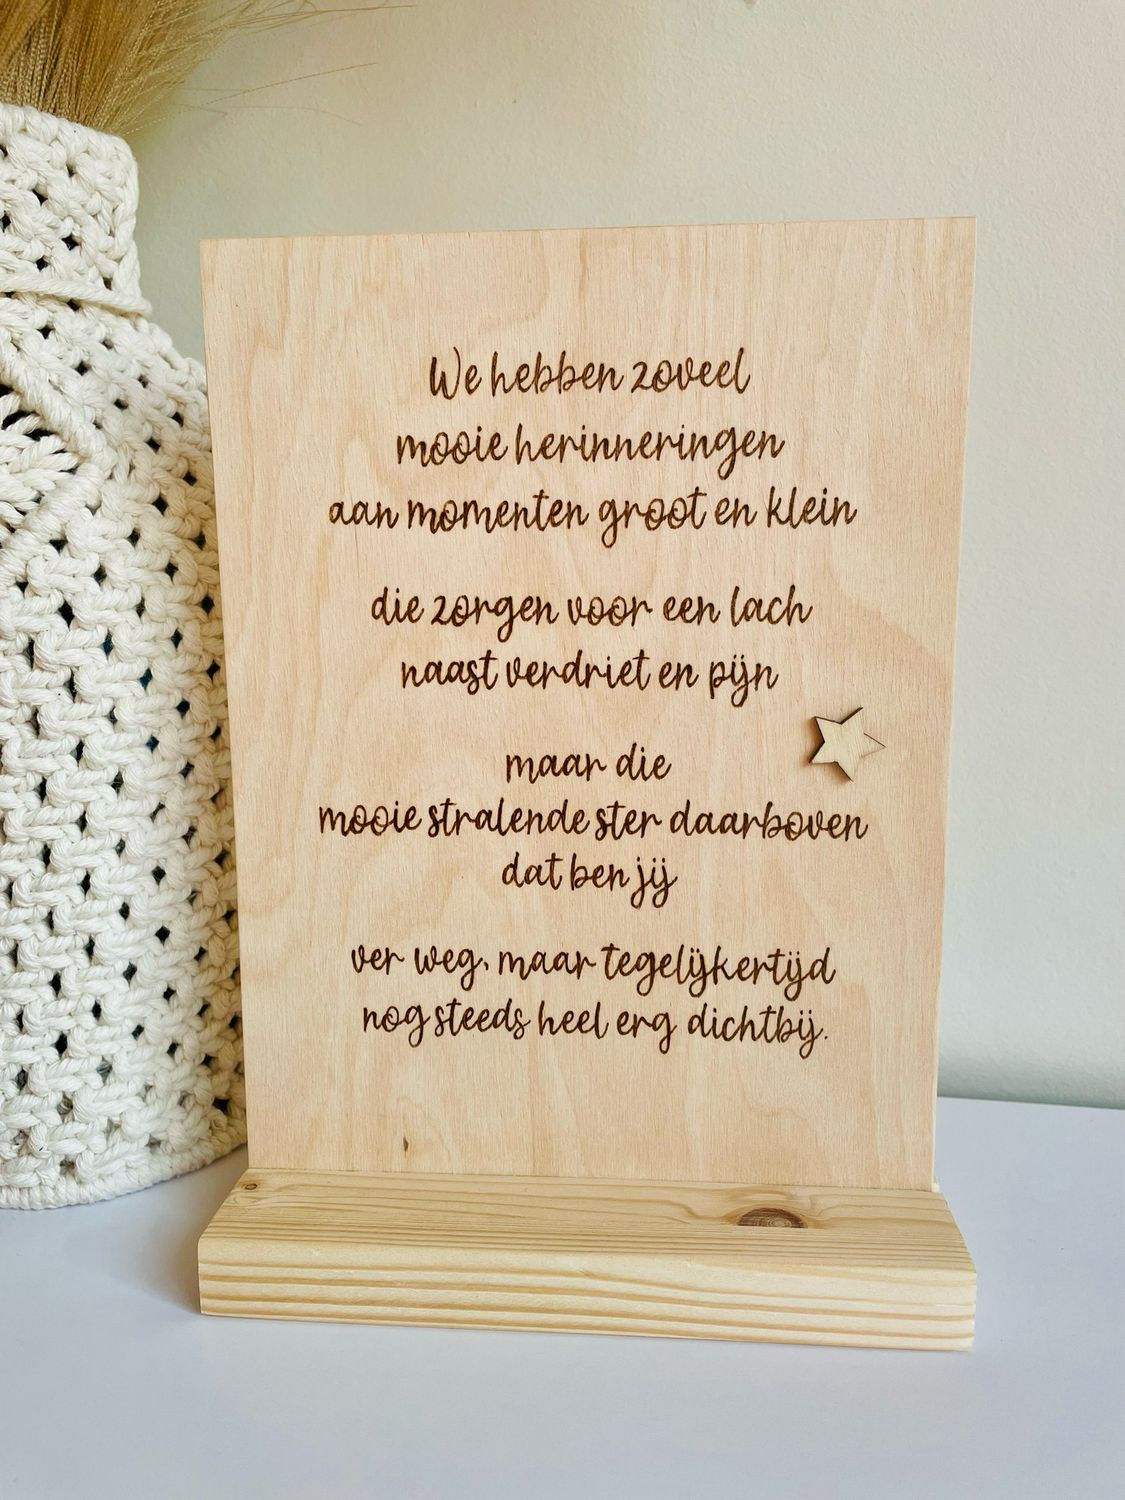 We hebben zoveel
mooie herinneringen
aan momenten groot en klein
die zorgen voor een lach
naast verdriet en pijn
maar die
mooie stralende ster daarboven
dat ben jij
ver weg, maar tegelijkertijd
nog steeds heel erg dichtbij.